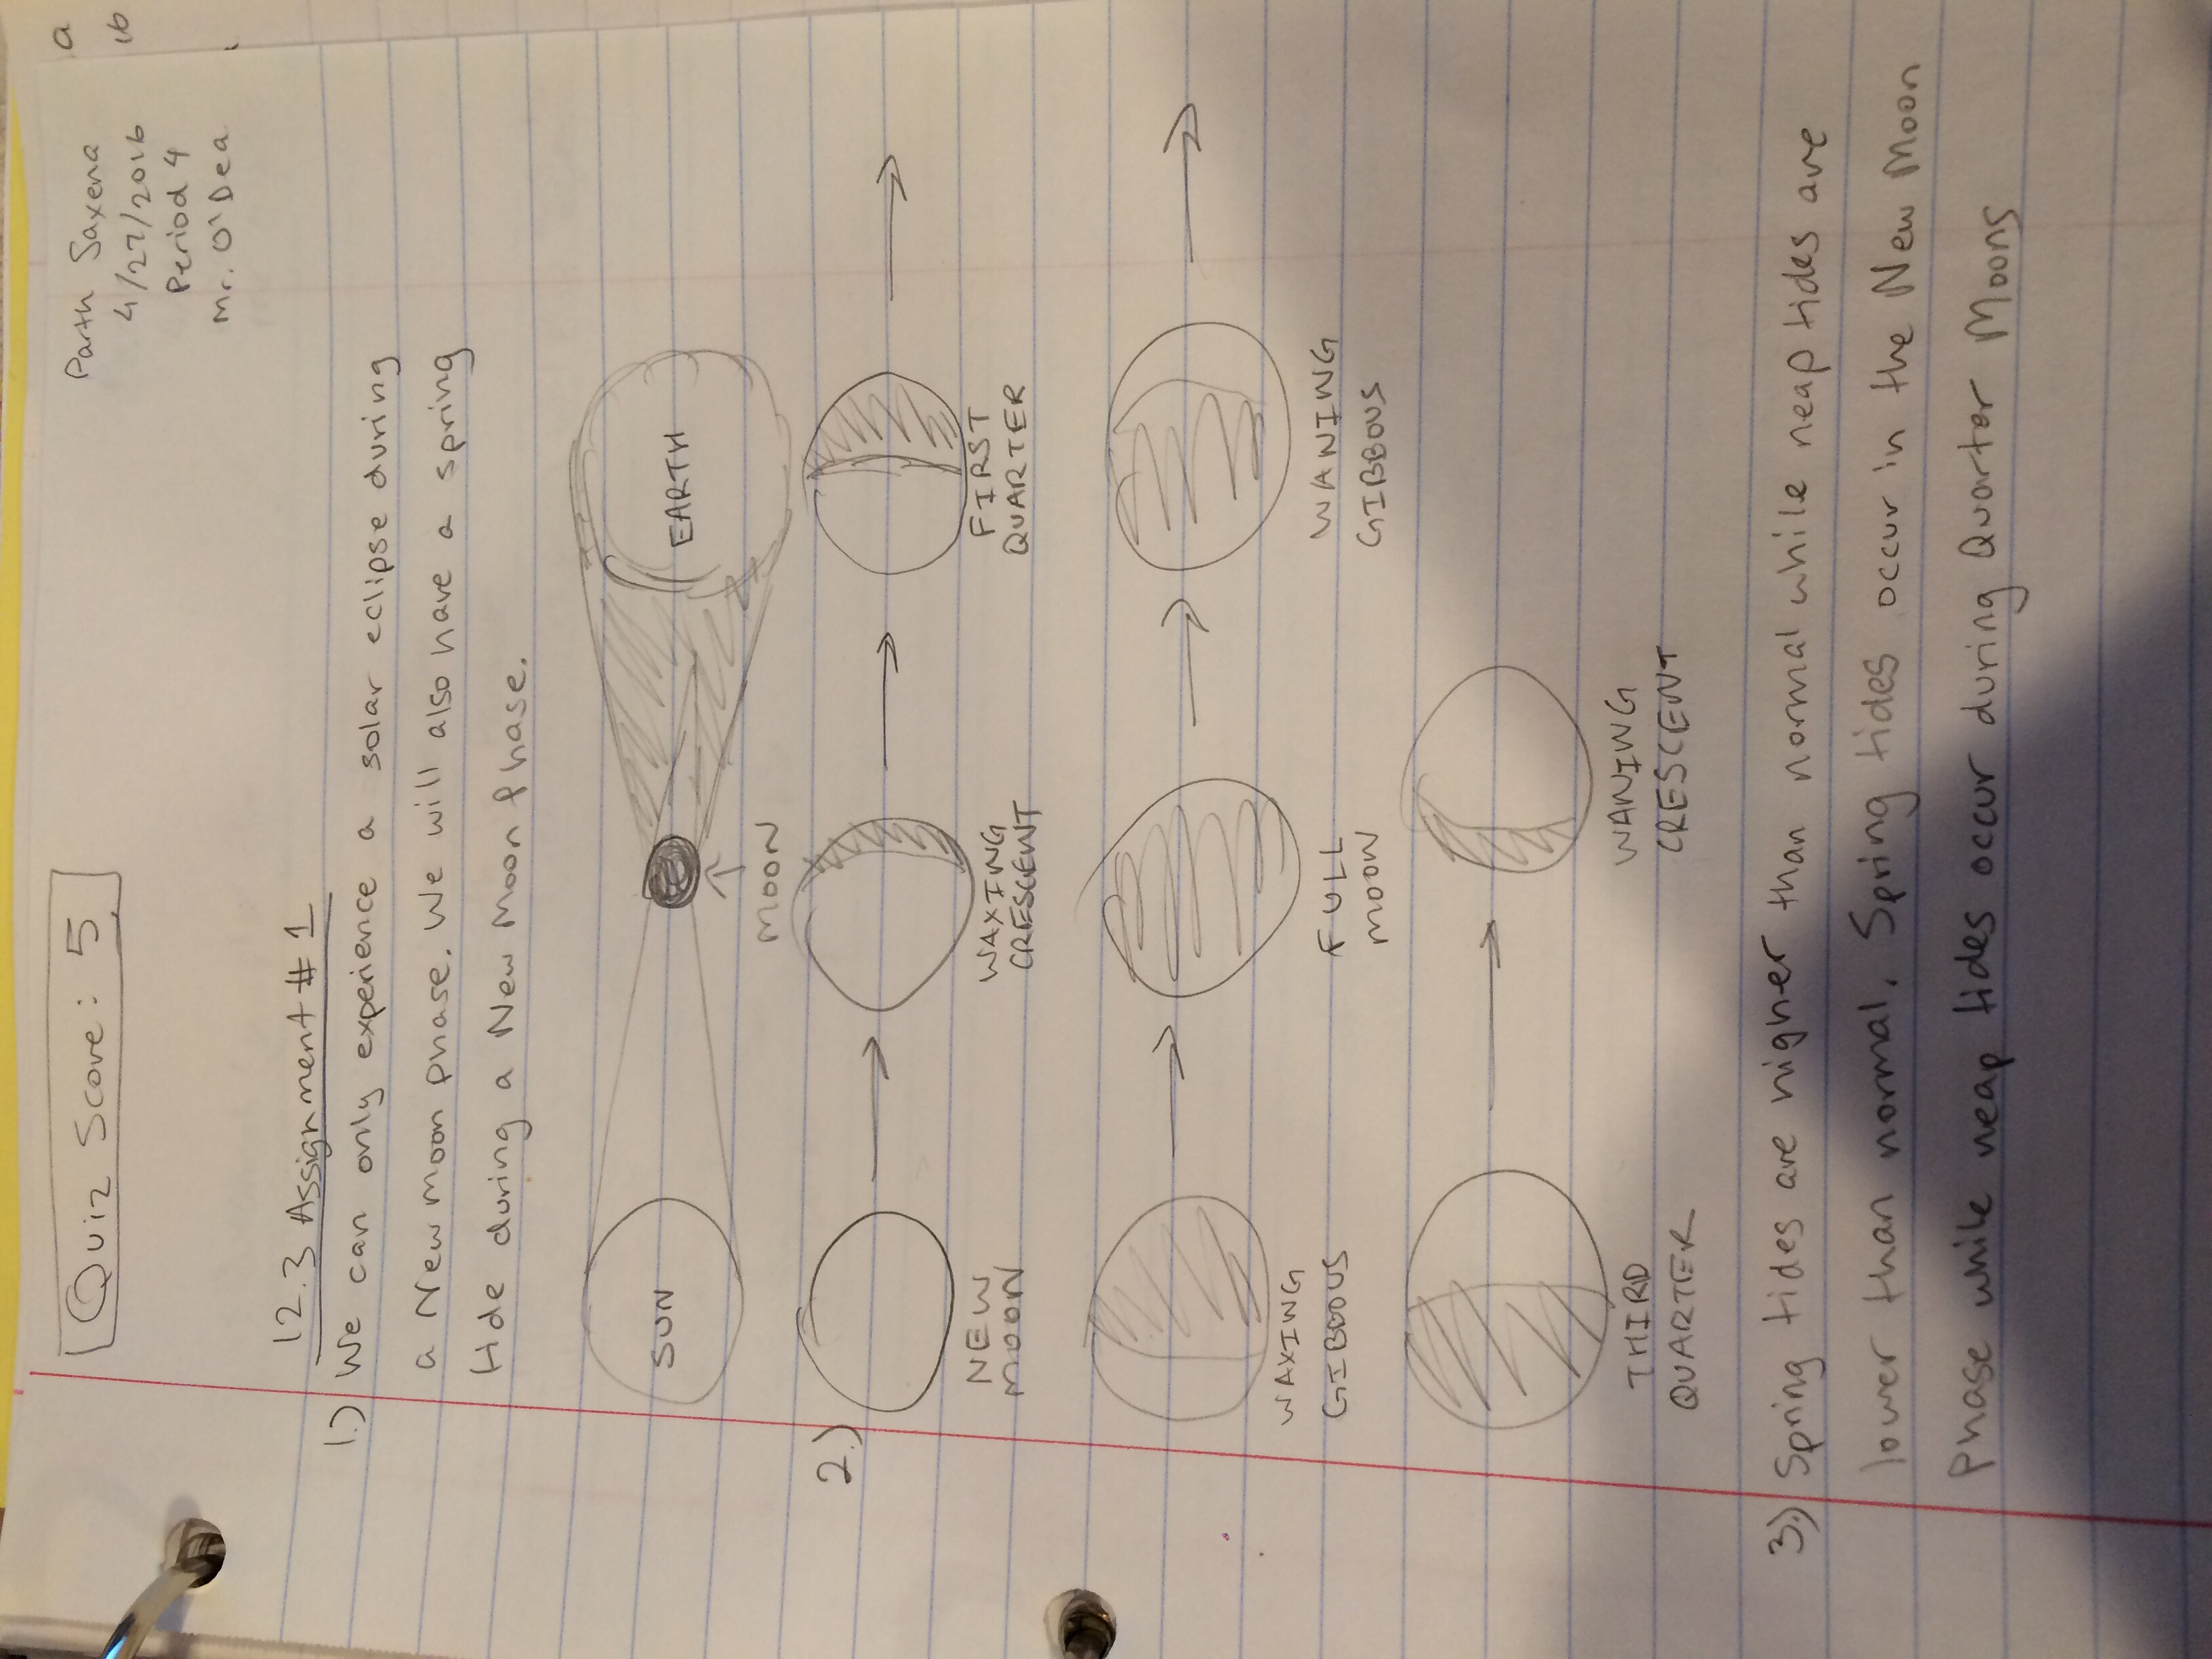 Quiz Score: 5
Parth Saxena
4/27/2016
Period 4
Mr. O'Dea
a
16
12.3 Assignment #1
1.) We can only experience a solar eclipse during
a New moon phase. We will also have a spring
tide during a New Moon Phase.
SUN
EARTH
MOON
2.)
NEW
MOON
WAXING
CRESCENT
FIRST
QUARTER
WAXING
GIBBOUS
FULL
MOON
WANING
GIBBOUS
THIRD
QUARTER
WANING
CRESCENT
3.) Spring tides are higher than normal while neap tides are
lower than normal. Spring tides occur in the New Moon
Phase while neap tides occur during Quarter Moons